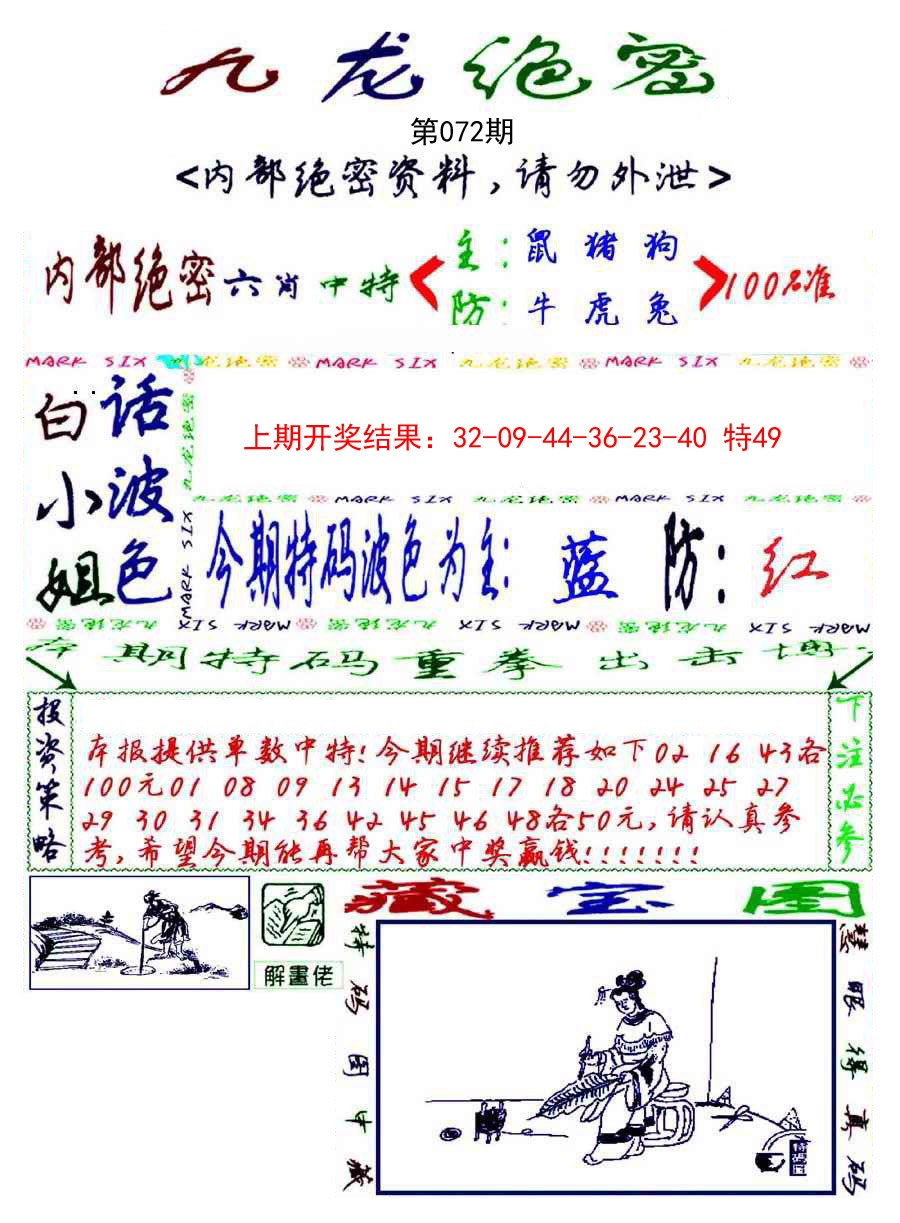 九龙绝密
第072期
<内部绝密资料,请勿外泄>
内部绝密六肖中特
主:鼠 猪 狗
防:牛 虎 兔
100%准
MARK SIX 九龙绝密 MARK SIX 九龙绝密 MARK SIX 九龙绝密
白话
小波
姐色
九龙绝密 MARK SIX
上期开奖结果：32-09-44-36-23-40 特49
九龙绝密 MARK SIX 九龙绝密 MARK SIX 九龙绝密
今期特码波色为主: 蓝 防: 红
九龙绝密 MARK SIX 九龙绝密 MARK SIX 九龙绝密 MARK SIX
本期特码重拳出击
投资策略
本报提供单数中特!今期继续推荐如下02 16 43各
100元01 08 09 13 14 15 17 18 20 24 25 27
29 30 31 34 36 42 45 46 48各50元,请认真参
考,希望今期能再帮大家中奖赢钱!!!!!!!
下注必参
解畫佬
藏宝图
特码图中藏
慧眼得真码